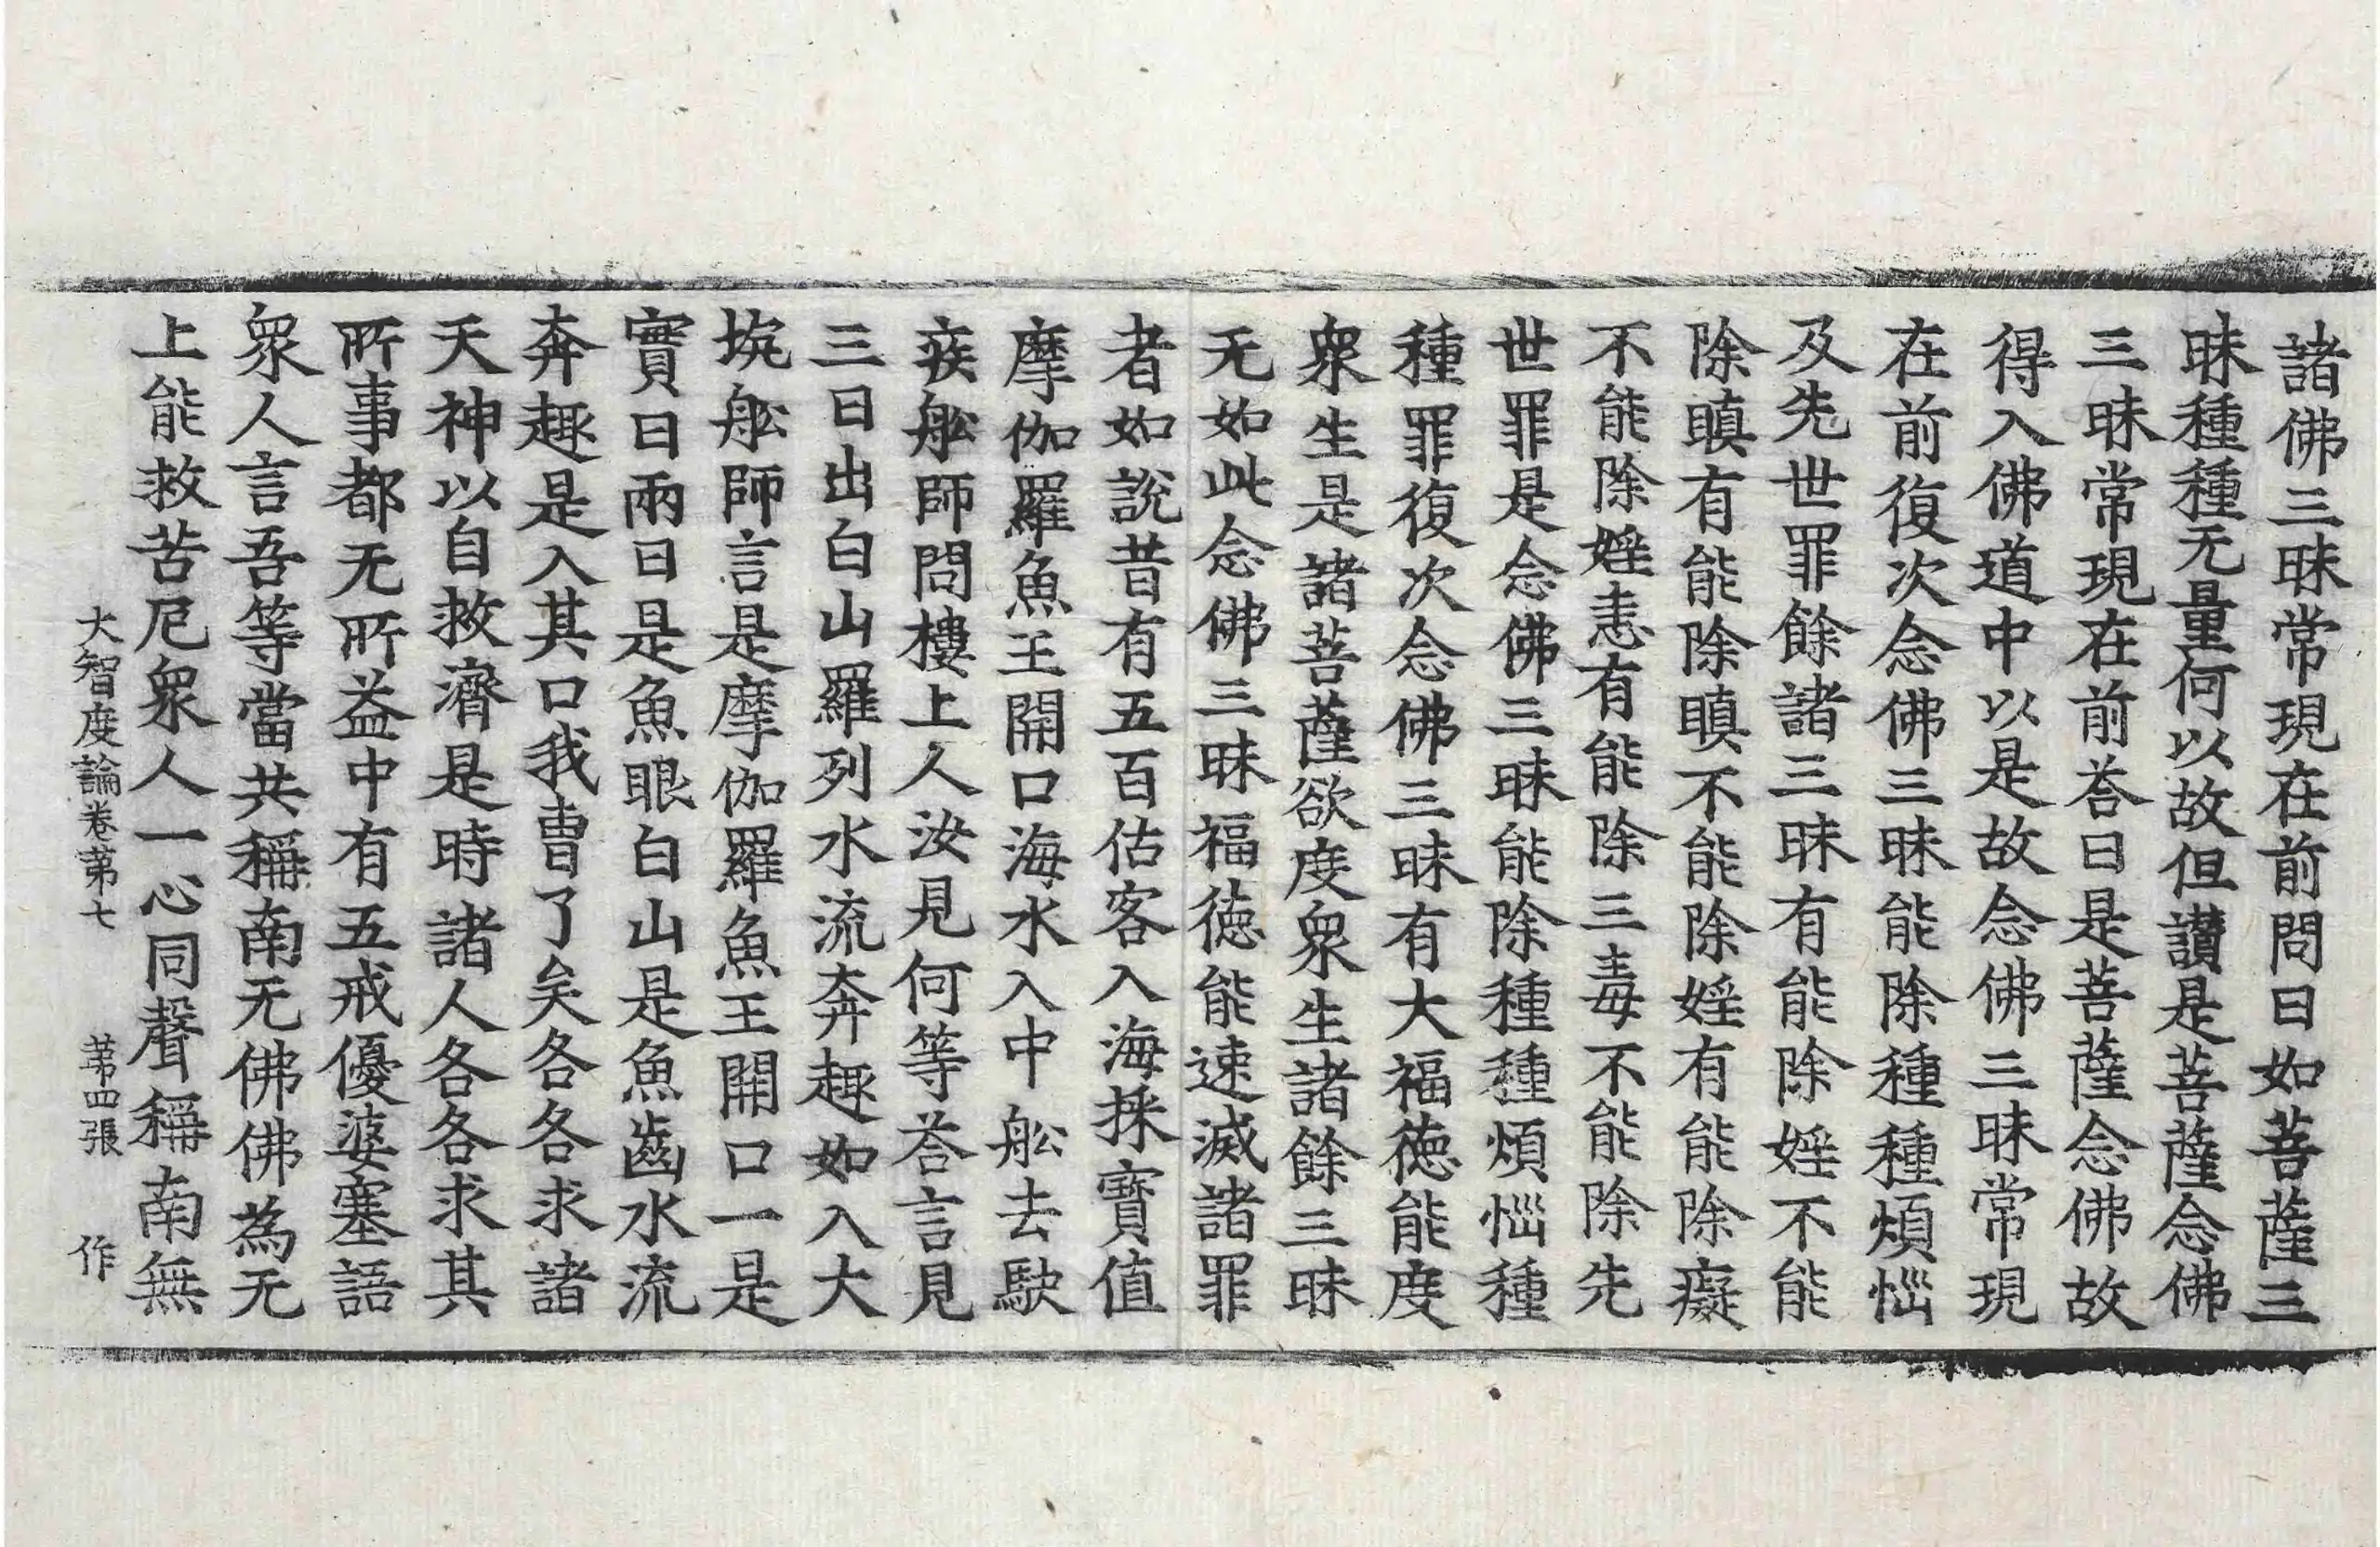 諸佛三昧常現在前問曰如菩薩三
昧種種无量何以故但讃是菩薩念佛
三昧常現在前荅曰是菩薩念佛故
得入佛道中以是故念佛三昧常現
在前復次念佛三昧能除種種煩惱
及先世罪餘諸三昧有能除婬不能
除瞋有能除瞋不能除婬有能除癡
不能除婬恚有能除三毒不能除先
世罪是念佛三昧能除種種煩惱種
種罪復次念佛三昧有大福德能度
衆生是諸菩薩欲度衆生諸餘三昧
无如此念佛三昧福德能速滅諸罪
者如說昔有五百估客入海採寶值
摩伽羅魚王開口海水入中舩去駛
疾舩師問樓上人汝見何等荅言見
三日出白山羅列水流奔趣如入大
坑舩師言是摩伽羅魚王開口一是
實日兩日是魚眼白山是魚齒水流
奔趣是入其口我曹了矣各各求諸
天神以自救濟是時諸人各各求其
所事都无所益中有五戒優婆塞語
衆人言吾等當共稱南无佛佛為无
上能救苦厄衆人一心同聲稱南無
大智度論卷第七 第四張 作